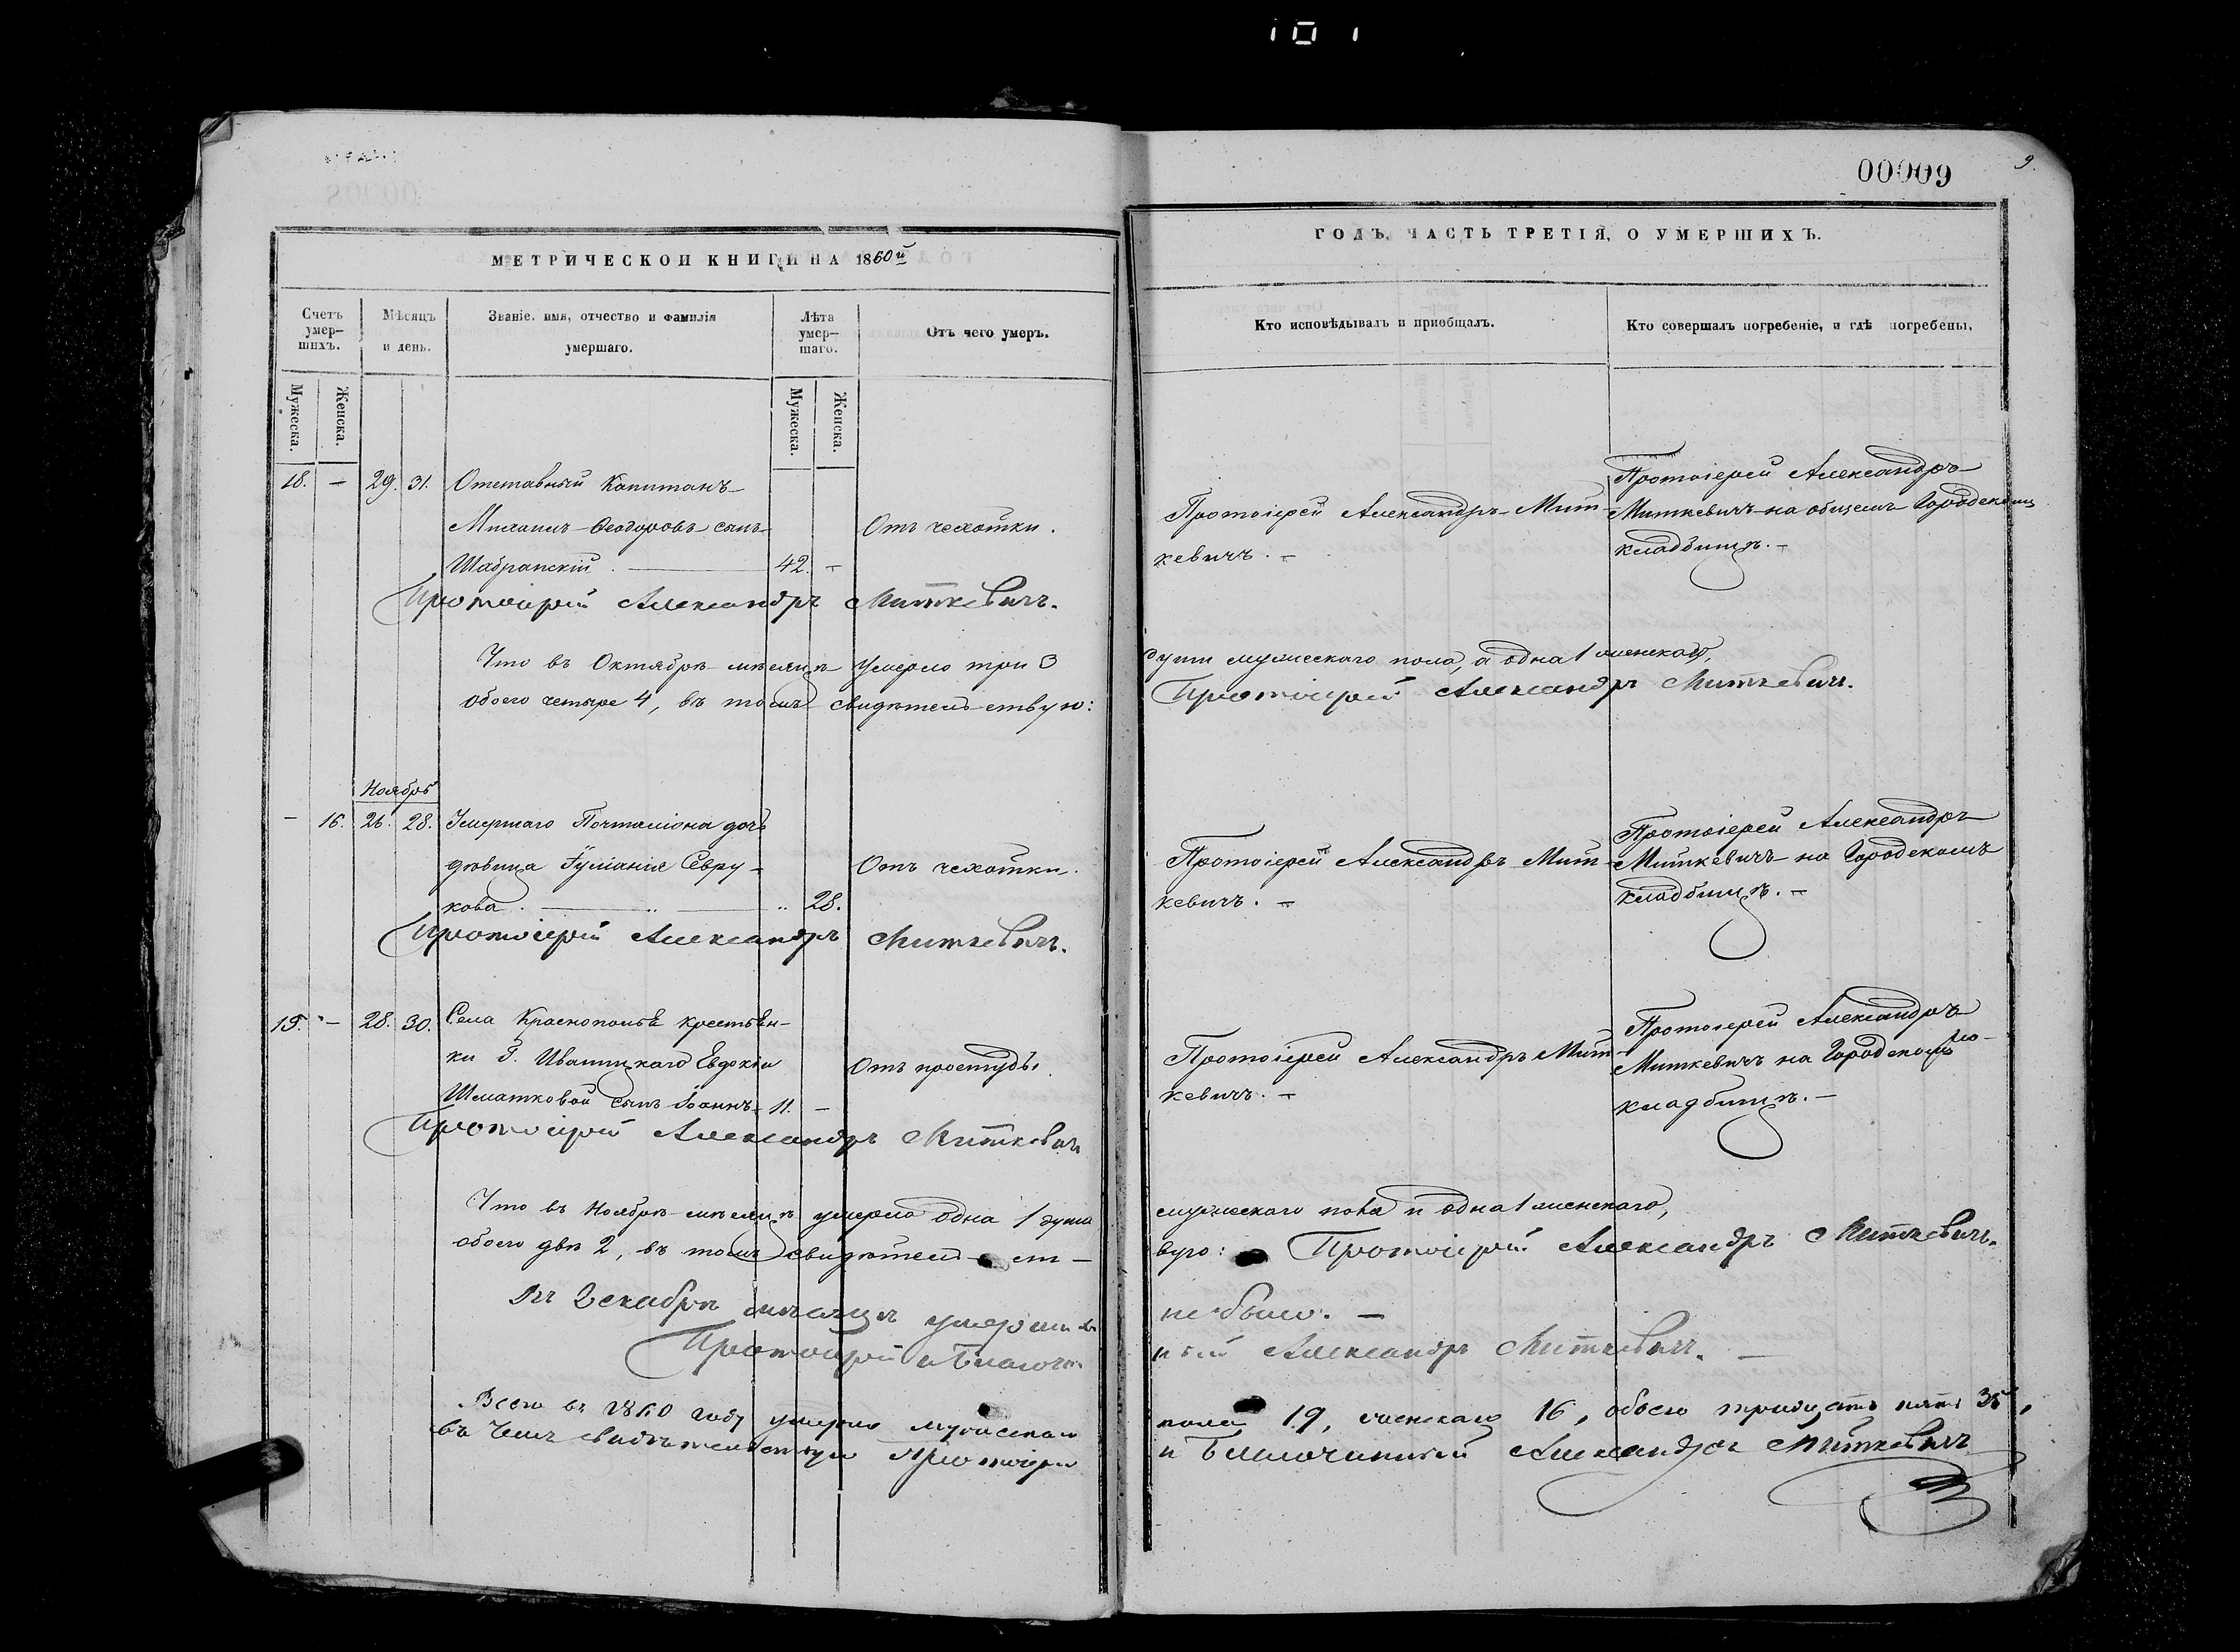 101
00009
9.
МЕТРИЧЕСКОЙ КНИГИ НА 1860й
ГОДЪ, ЧАСТЬ ТРЕТІЯ, О УМЕРШИХЪ.
Счетъ умер-
шихъ.
Мѣсяцъ
и день.
Званіе, имя, отчество и фамилія
умершаго.
Лѣта
умер-
шаго.
Отъ чего умеръ.
Кто исповѣдывалъ и пріобщалъ.
Кто совершалъ погребеніе, и гдѣ погребены.
Мужеска.
Женска.
Мужеска.
Женска.
18. – 29. 31. Отставный Капитанъ
Михаилъ Ѳеодоровъ сынъ
Шабранскій. 42. –
Отъ чехотки.
Протоіерей Александръ Мит-
кевичъ. –
Протоіерей Александръ
Миткевичъ на общемъ Городскомъ
кладбищѣ. –
Протоіерей Александръ Миткевичъ.
Что въ Октябрѣ мѣсяцѣ умерло три 3 души мужескаго пола, а одна 1 женскаго,
обоего четыре 4, въ томъ свидѣтельствую: Протоіерей Александръ Миткевичъ.
Ноябрь
– 16. 26. 28. Умершаго Почталіона дочь
дѣвица Іуліанія Севру-
кова. 28.
Отъ чехотки.
Протоіерей Александръ Мит-
кевичъ. –
Протоіерей Александръ
Миткевичъ на Городскомъ
кладбищѣ. –
Протоіерей Александръ Миткевичъ.
19. – 28. 30. Села Краснополья крестьян-
ки Г. Иваницкаго Евдокіи
Шматковой сынъ Іоаннъ 11. –
Отъ простуды.
Протоіерей Александръ Мит-
кевичъ. –
Протоіерей Александръ
Миткевичъ на Городскомъ
кладбищѣ. –
Протоіерей Александръ Миткевичъ
Что въ Ноябрѣ мѣсяцѣ умерло одна 1 душа мужескаго пола и одна 1 женскаго,
обоего двѣ 2, въ томъ свидѣтельст-
вую: Протоіерей Александръ Миткевичъ.
Въ Декабрѣ мѣсяцѣ умершихъ не было. –
Протоіерей и Благочинный Александръ Миткевичъ. –
Всего въ 1860 году умерло мужескаго пола 19, женскаго 16, обоего тридцать пять 35,
въ чемъ свидѣтельствую Протоіерей и Благочинный Александръ Миткевичъ